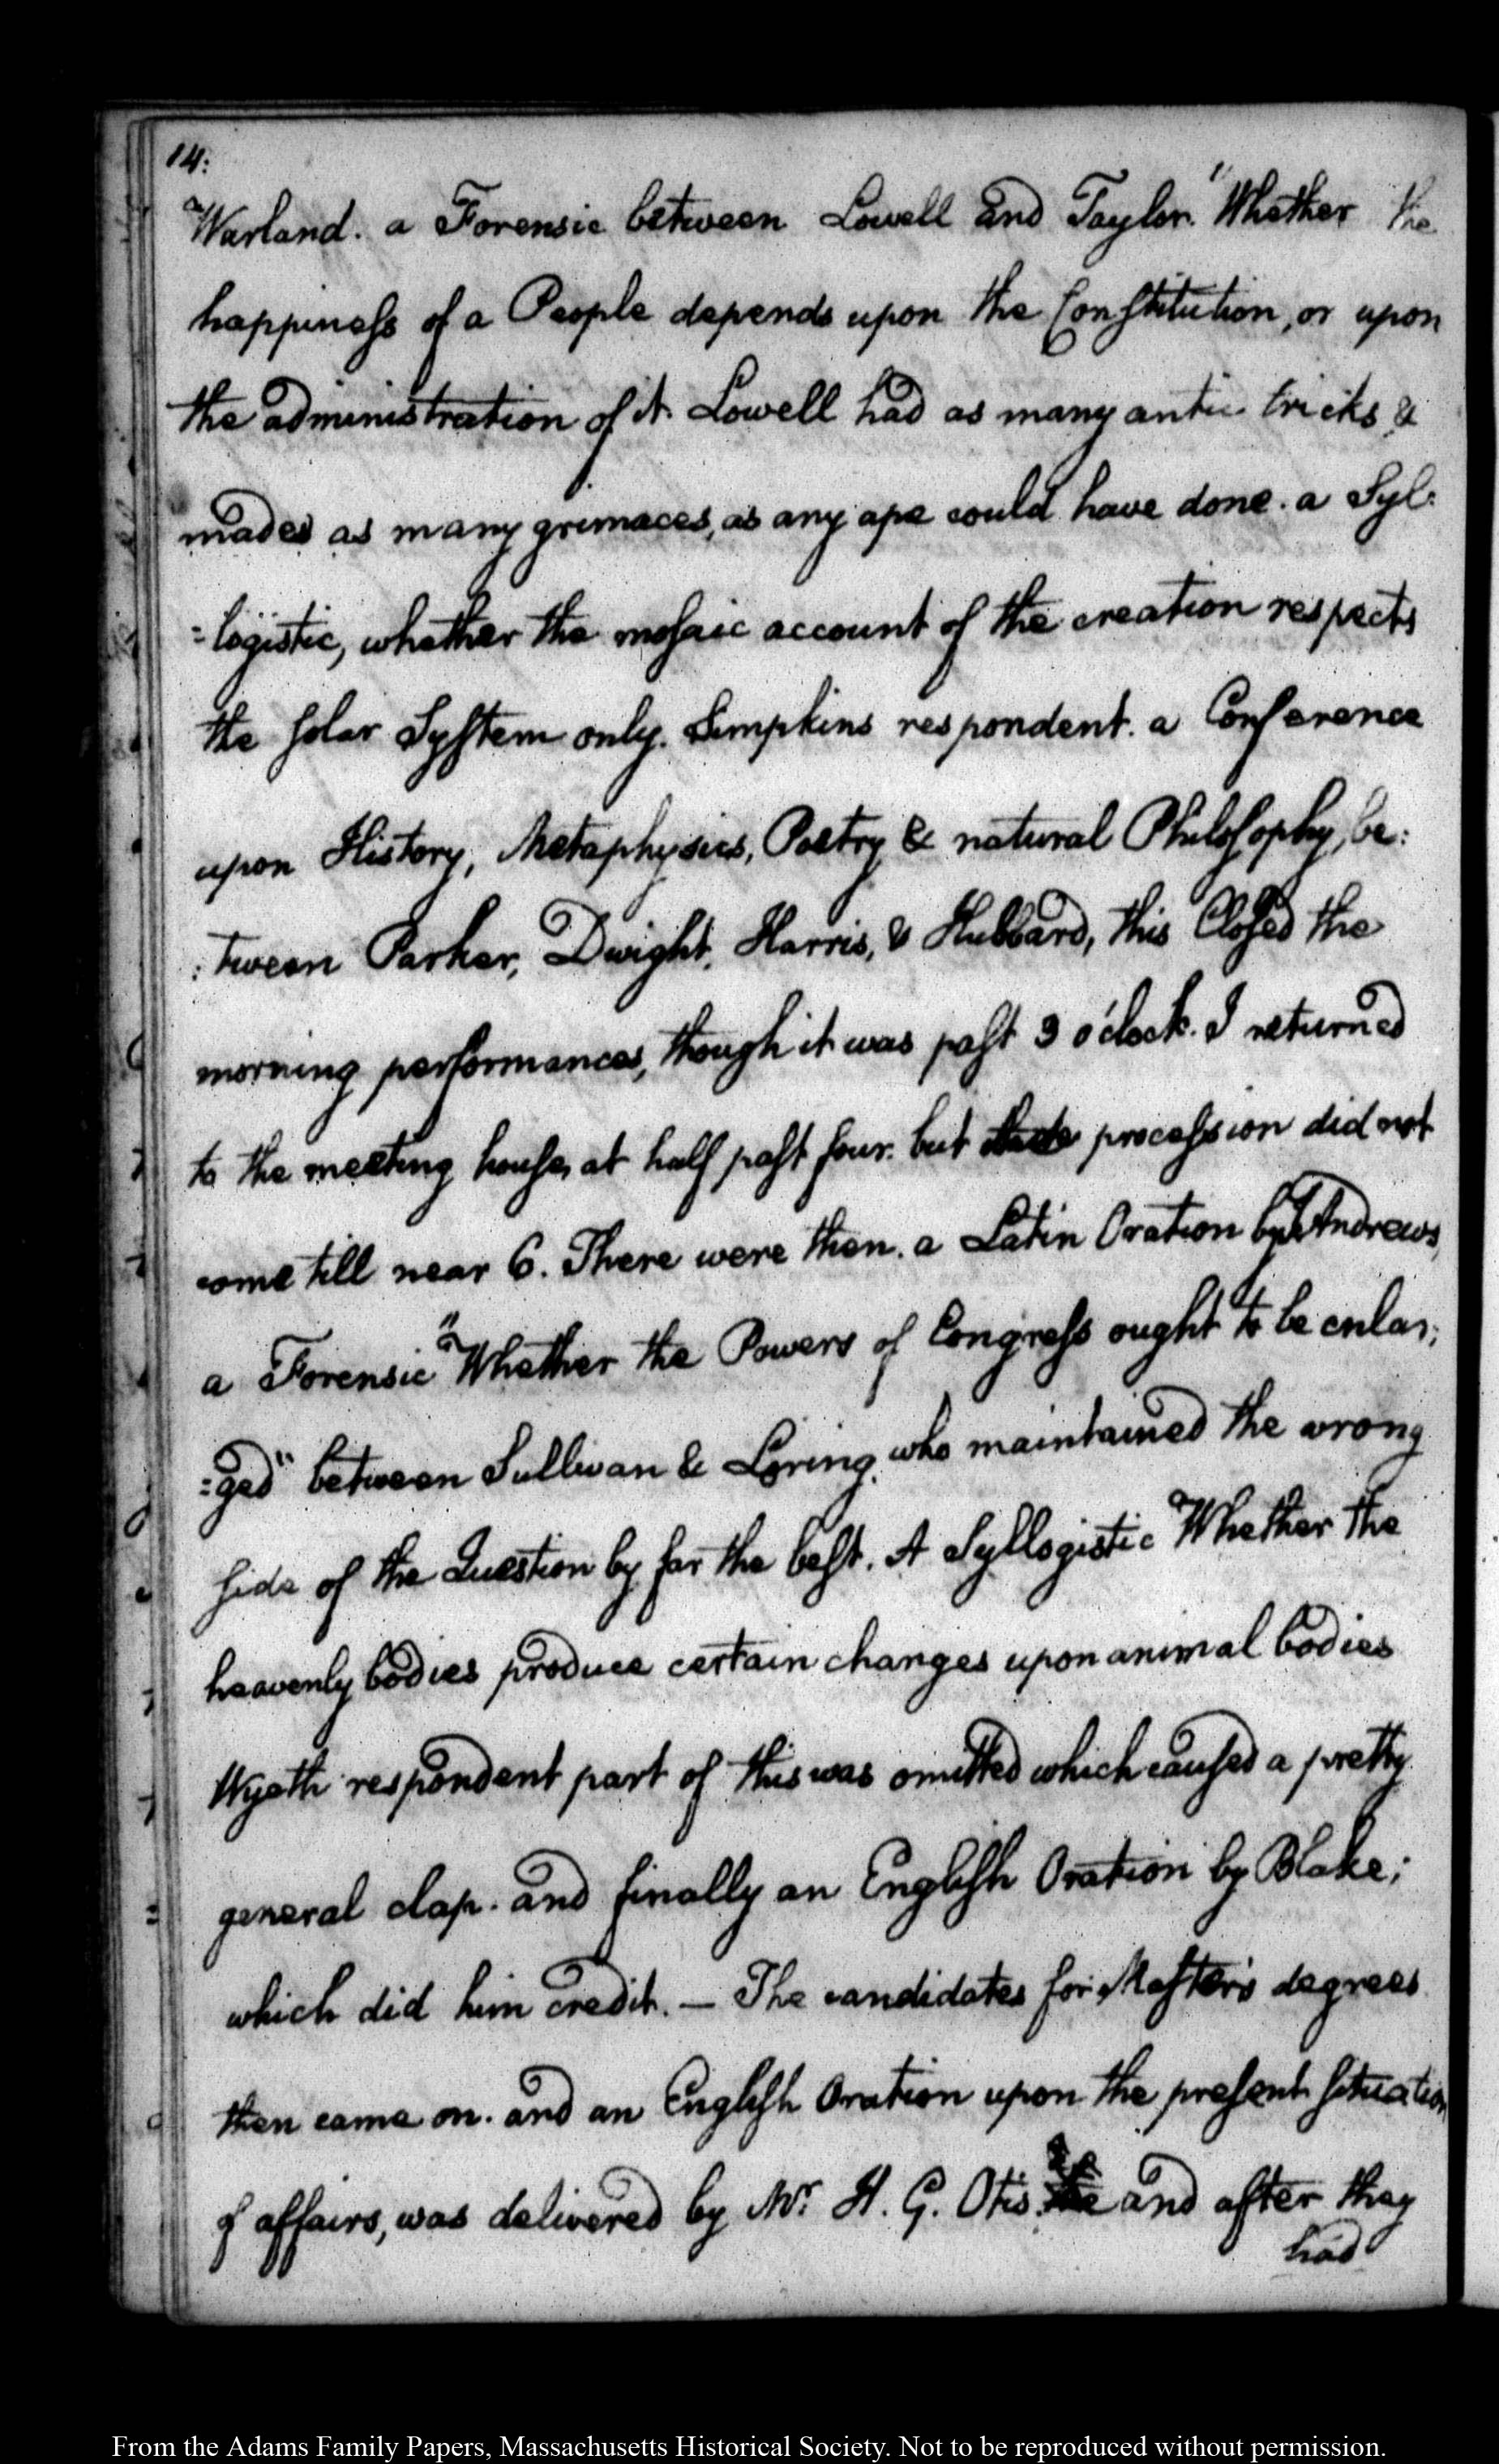 14:
Warland. a Forensic between Lowell and Taylor. "Whether the
happiness of a People depends upon the Constitution, or upon
the administration of it. Lowell had as many antic tricks, &
made as many grimaces, as any ape could have done. a Syl:
=logistic, whether the mosaic account of the creation respects
the solar System only. Simpkins respondent. a Conference
upon History, Metaphysics, Poetry & natural Philosophy, be:
:tween Parker, Dwight, Harris, & Hubbard, this Closed the
morning performances, though it was past 3 o'clock. I returned
to the meeting house, at half past four. but procession did not
come till near 6. There were then. a Latin Oration by Andrews,
a Forensic "Whether the Powers of Congress ought to be enlar:
:ged" between Sullivan & Loring, who maintained the wrong
side of the Question by far the best. A Syllogistic "Whether the
heavenly bodies produce certain changes upon animal bodies
Wyeth respondent part of this was omitted which caused a pretty
general clap. and finally an English Oration by Blake;
which did him credit. — The candidates for Master's degrees
then came on. and an English Oration upon the present situation
of affairs, was delivered by Mr. H. G. Otis. and after they
had
From the Adams Family Papers, Massachusetts Historical Society. Not to be reproduced without permission.